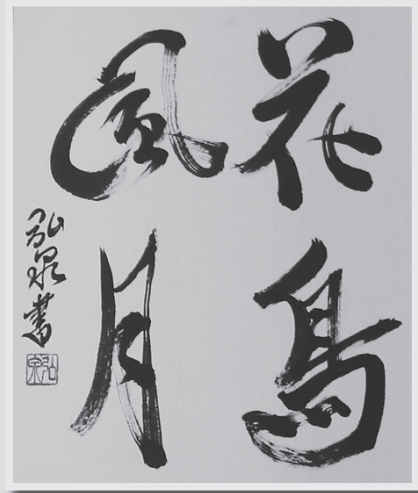 花鳥
風月
弘泉書